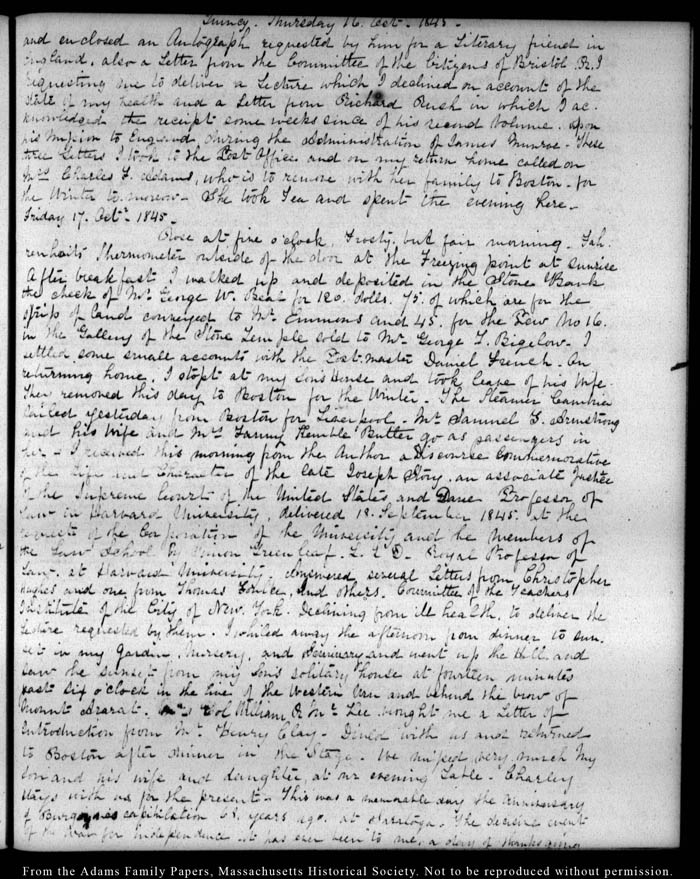 Quincy. Thursday 16. Oct. 1845.
and enclosed an Autograph requested by him for a Literary friend in
England, also a Letter from the Committee of the Citizens of Bristol R.I
requesting me to deliver a Lecture which I declined on account of the
state of my health and a Letter from Richard Rush in which I ac-
knowledged the receipt some weeks since of his second Volume. upon
his Mission to England, during the Administration of James Munroe. These
three Letters I took to the Post Office and on my return home called on
Mrs Charles F. Adams, who is to remove with her family to Boston. for
the Winter to-morrow. She took Tea and spent the evening here.
Friday 17. Oct. 1845.
Rose at five o'clock. Frosty, but fair morning. Fah-
renhait's Thermometer outside of the door at the Freezing point at sunrise
After breakfast I walked up and deposited in the Stone Bank
the check of Mr George W. Beal for 120. dolls. 75. of which are for the
strip of land conveyed to Mr. Emmons and 45. for the Pew No 16.
in the Gallery of the Stone Temple sold to Mr. George T. Bigelow. I
settled some small accounts with the Post-master Daniel French. On
returning home, I stopt at my sons House and took leave of his Wife.
They removed this day to Boston for the Winter. The Steamer Cambria
sailed yesterday from Boston for Liverpool. Mr. Samuel T. Armstrong
and his Wife and Mrs Fanny Kemble Butler go as passengers in
her. I received this morning from the Author a Discourse Commemorative
of the Life and Character of the late Joseph Story, an associate Justice
of the Supreme Court of the United States and Dane Professor of
Law in Harvard University, delivered 18. September 1845. at the
request of the Corporation of the University and the members of
the Law School by Simon Greenleaf. L.L.D. Royal Professor of
Law. at Harvard University. Answered several Letters from Christopher
Hughes and one from Thomas and others. Committee of the Teachers
Institute of the City of New. York. Declining from ill health, to deliver the
Lecture requested by them. I whiled away the afternoon from dinner to sun.
set in my Garden, Nursery, and Seminary and went up the Hill and
saw the sunset from my sons solitary house at fourteen minutes
past six o'clock in the line of the Western and behind the brow of
Mount Ararat. Col William Lee brought me a Letter of
Introduction from Mr. Henry Clay. Dined with us and returned
to Boston after dinner in the Stage. We missed very much my
son and his wife and daughter, at our evening Table. Charley
stays with us for the present. This was a memorable day the Anniversary
of Burgoynes capitulation 68. years ago. at Saratoga. The decisive event
of the War for Independence. it has ever been to me, a day of thanksgiving
From the Adams Family Papers, Massachusetts Historical Society. Not to be reproduced without permission.